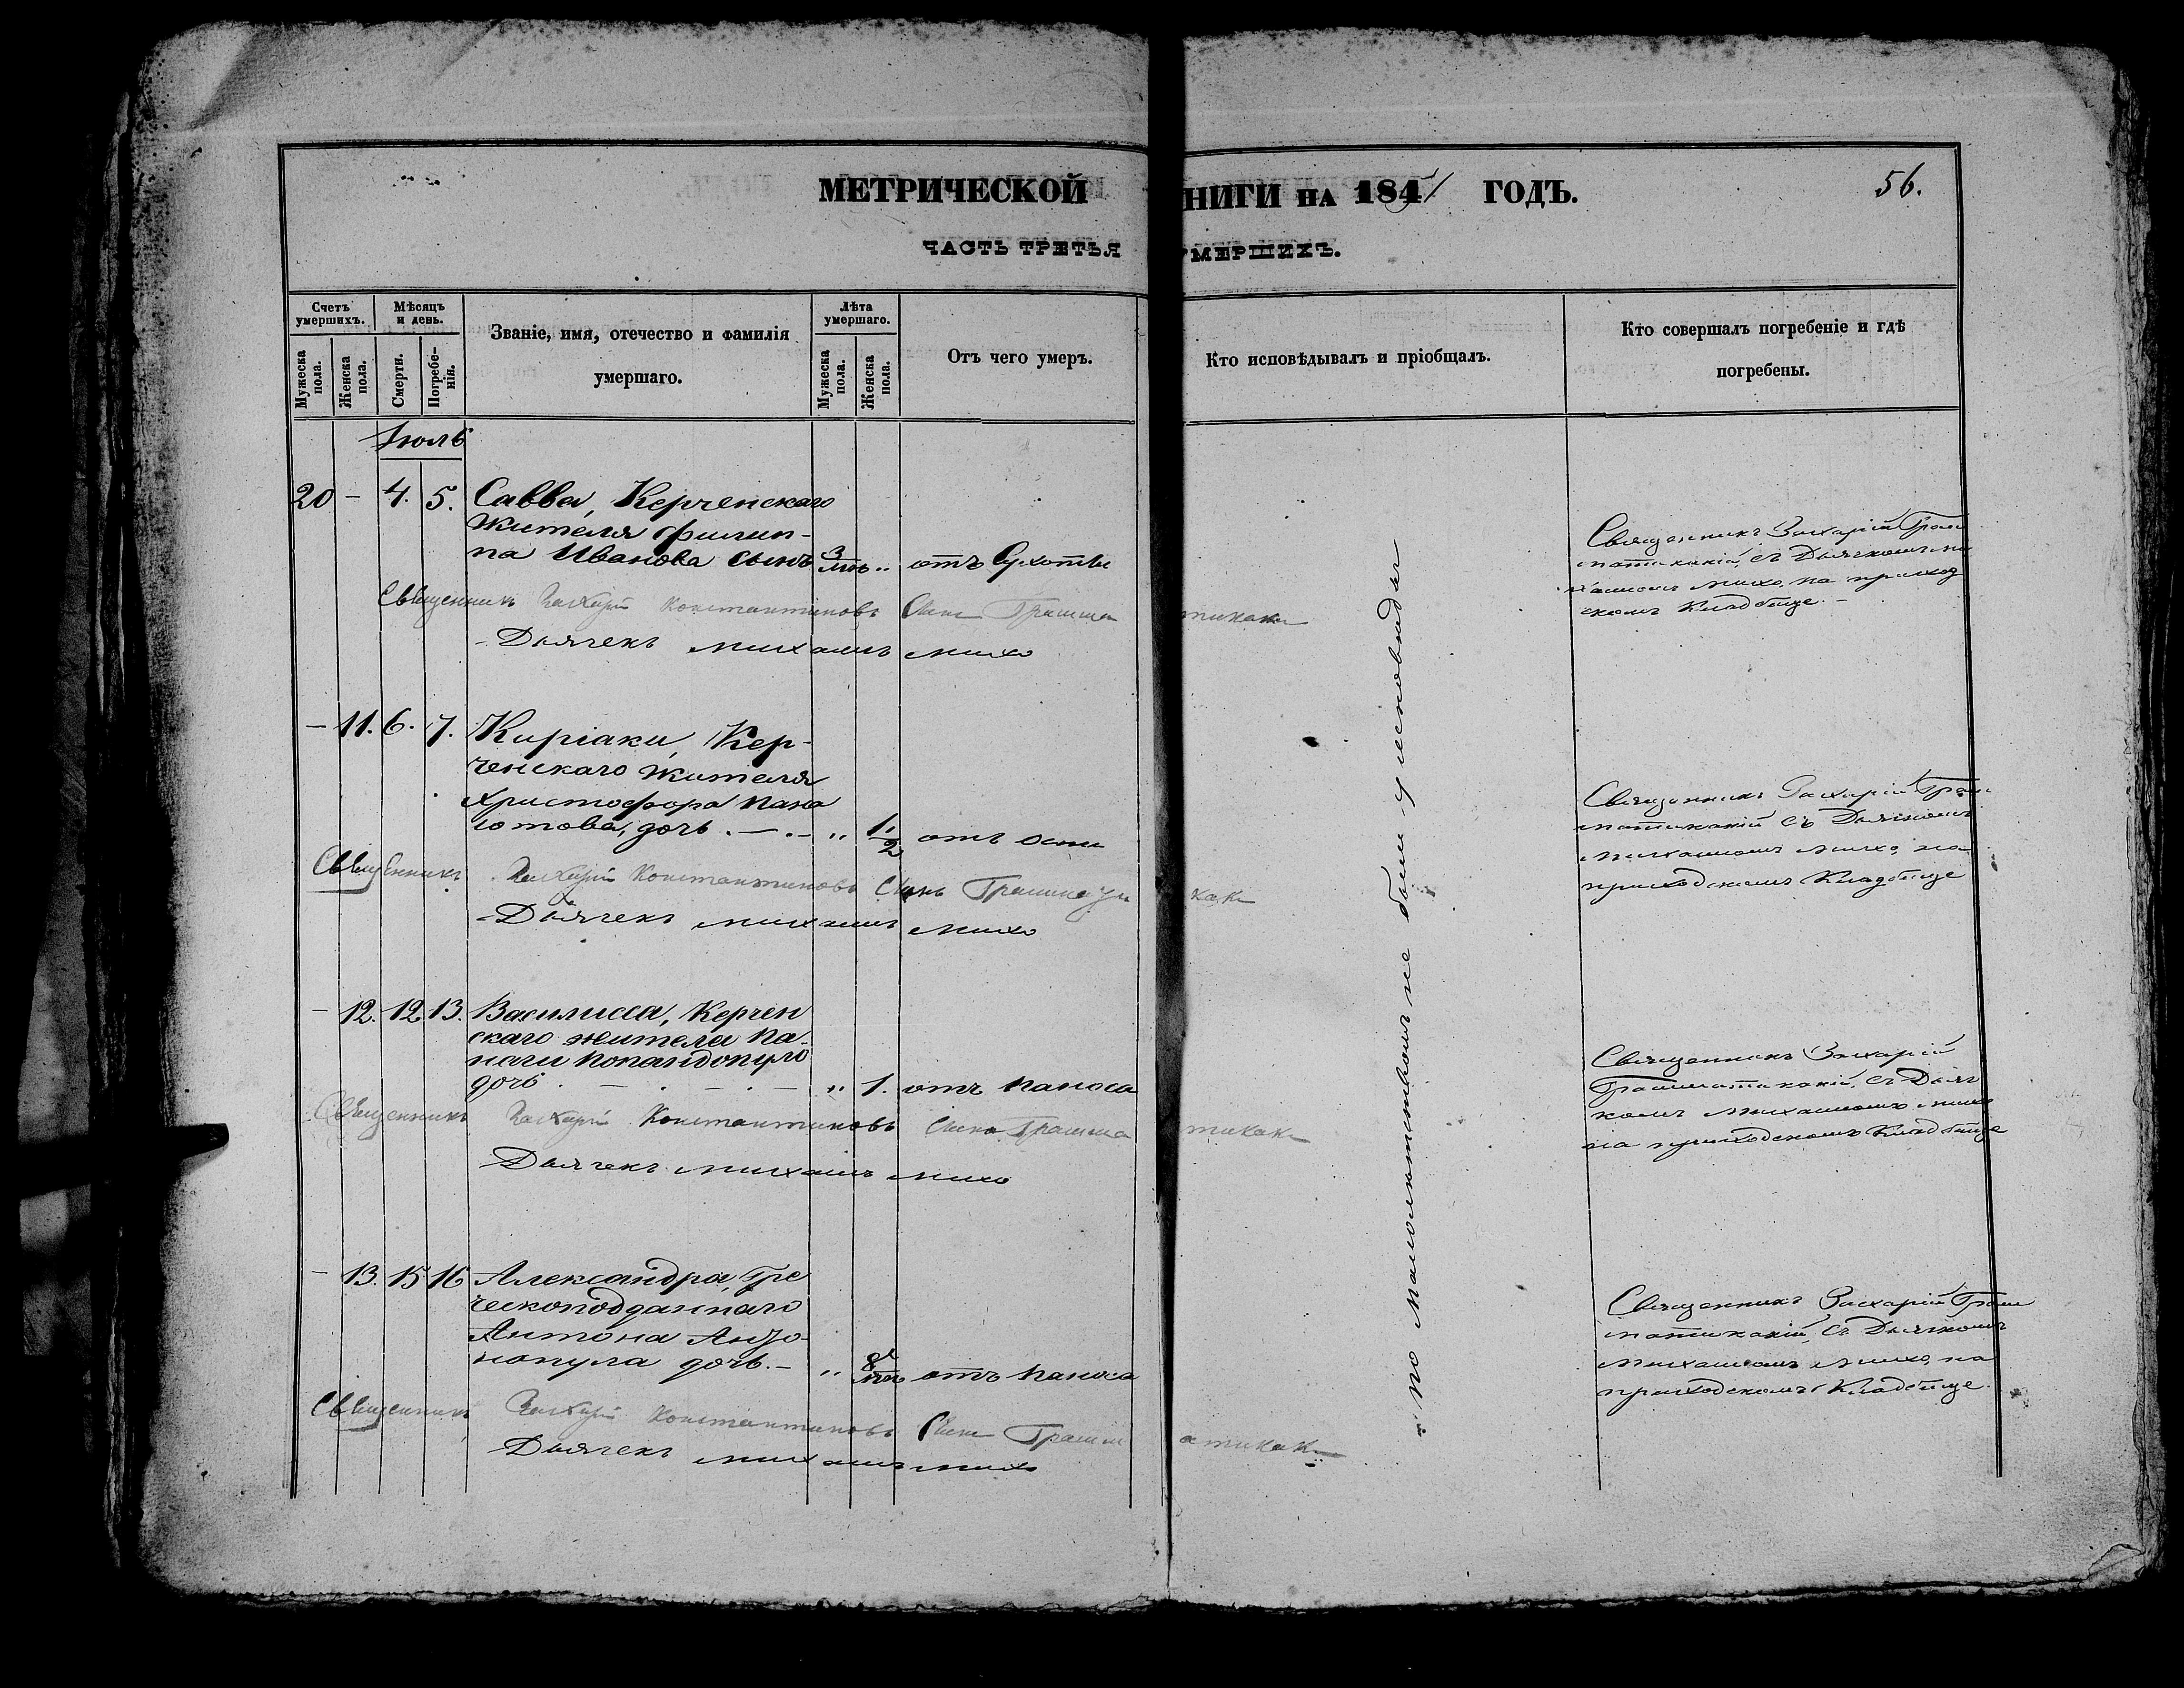 МЕТРИЧЕСКОЙ НИГИ НА 1851 ГОДЪ.
56.
ЧАСТЬ ТРЕТЬЯ УМЕРШИХЪ.
Счетъ умершихъ.
Мужеска пола.
Женска пола.
Мѣсяцъ и день.
Смерти.
Погребе-нія.
Званіе, имя, отечество и фамилія
умершаго.
Лѣта умершаго.
Мужеска пола.
Женска пола.
Отъ чего умеръ.
Кто исповѣдывалъ и пріобщалъ.
Кто совершалъ погребеніе и гдѣ
погребены.
Іюль
20 - 4. 5. Савва, Керченскаго
жителя Филип-
па Иванова сынъ 3 мѣ. „ отъ Сухотки
Священникъ Захарій Грам
матикакій, съ Дьячкомъ ми
хаиломъ михо, на приход
скомъ Кладбище. -
Свѣщенникъ Захарій Константиновъ Сынъ Грамматикаки
- Дьячекъ михаилъ михо
- 11. 6. 7. Киріаки, Кер-
ченскаго жителя
Христофора Пана
іотова, дочь. - . - „ 1 1/2 отъ оспи
Священникъ Захарій Грам
матикакій съ Дьячкомъ
михаиломъ михо, на
приходскомъ Кладбище
Свѣщенникъ Захарій Константиновъ Сынъ Грамматикаки
- Дьячекъ михаилъ михо
- 12. 12. 13. Василисса, Керчен
скаго жителя Па-
наги Попандопуло
дочь . - . - . - „ 1. отъ паноса
Священникъ Захарій
Грамматикакій, съ Дьяч
комъ михаиломъ михо
на приходскомъ Кладбище
Свѣщенникъ Захарій Константиновъ Сынъ Грамматикаки
Дьячекъ михаилъ михо
- 13. 15 16 Александра, Гре
ческоподданнаго
Антона Андо-
нопула дочь. - „ 8 мѣ отъ паноса
Священникъ Захарій Грам
матикакій, съ Дьячкомъ
михаиломъ михо, на
приходскомъ Кладбище.
Свѣщенникъ Захарій Константиновъ Сынъ Грамматикаки
Дьячекъ михаилъ михо
по малолѣтствомъ не были у исповѣди